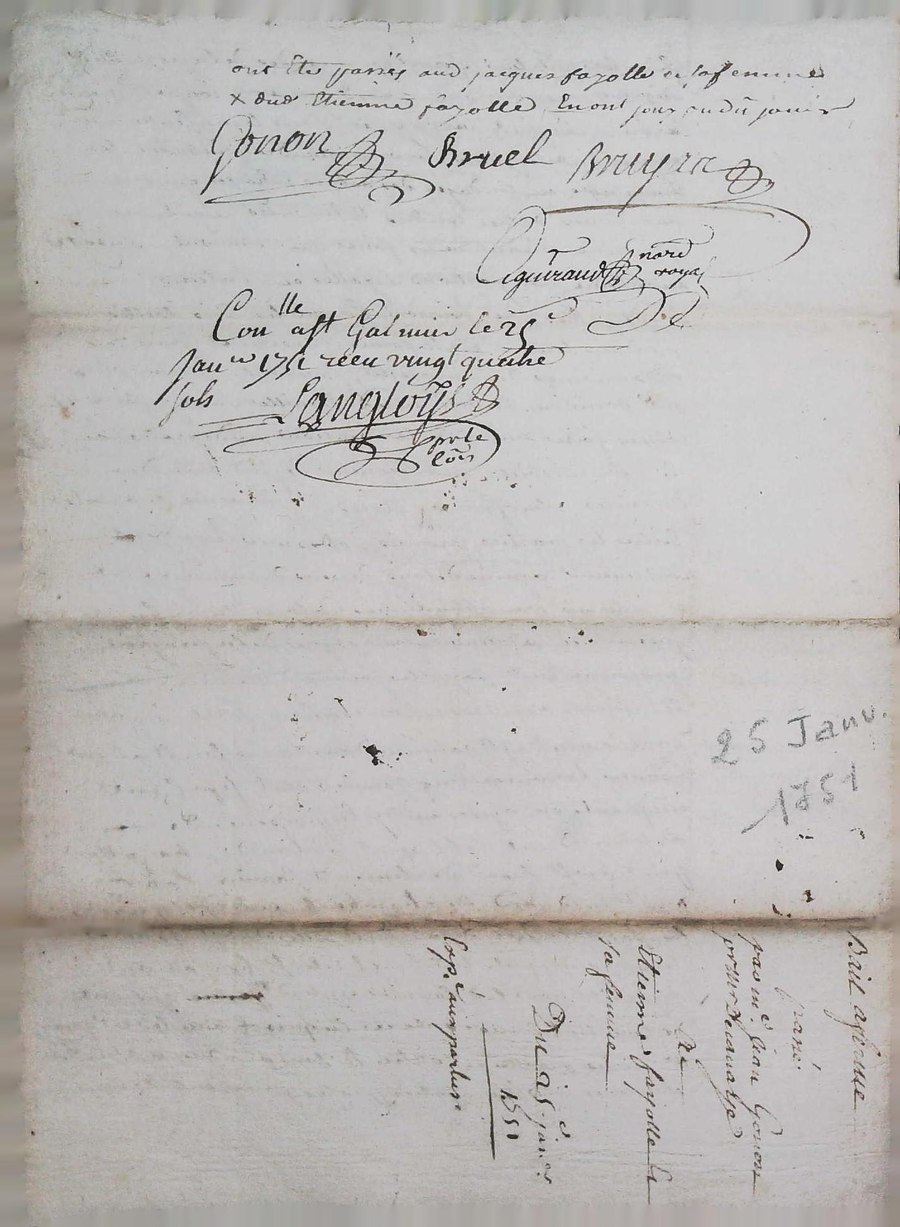 ont été passés aud jacques fayolle et sa femme
x dud Etienne fayolle En ont joui ou dû jouir
Gonon Bruel Bruyra
guiraud nore
royal
Con lle a st Galmier le 25 e
Janv er 1751 receu vingt quatre
sols Langloÿs
pr le
Con
25 Janv.
1751
Bail aferme
passé
par m e Jean Gonon
a
Etienne fayolle Et
sa femme
Du 25 e janv er
1751
Exp e aux parties